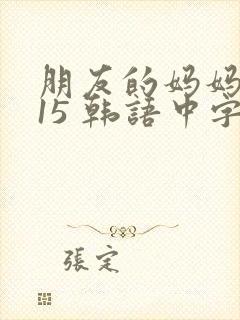 朋友的妈妈
15 韩語中字
張定